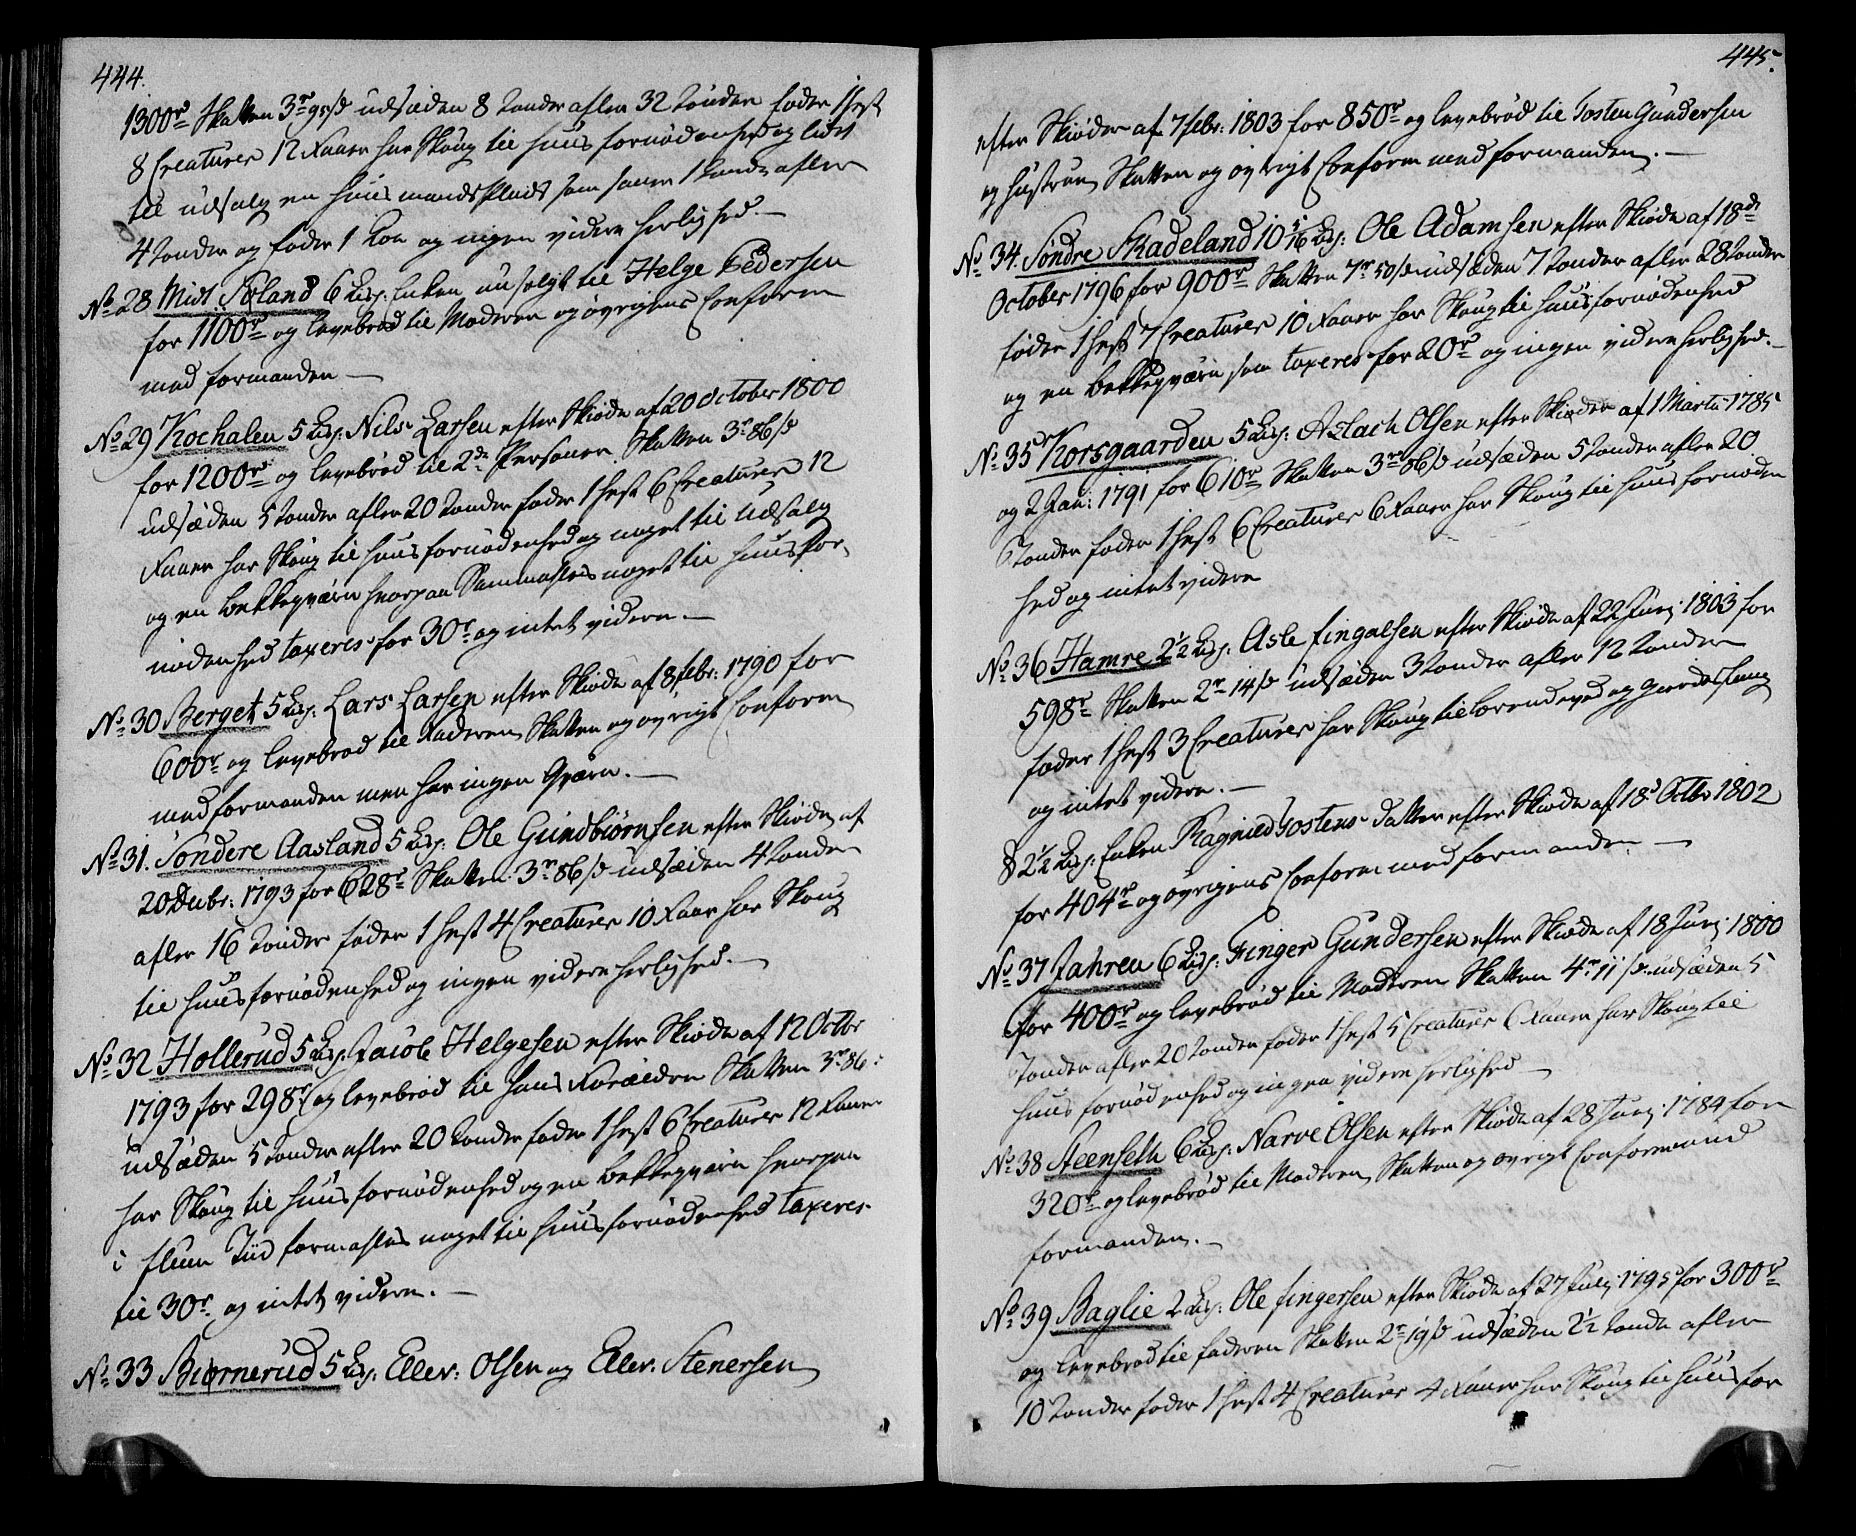 444.
1300rd Skatten 3rd 95/s udsæden 8 tønder afler 32 tønder føder 1 hest
8 Creature 12 Faaer har Skoug til huusfornødenhed og lidet
til udsalg en huusmandsplads som saaer 1 tønde afler
4 tønder og føder 1 Koe og ingen videre herlighed.—
No 28 Midt Søland 6 Lisp: Enken nu solgt til Helge Pedersen
for 1100rd og levebrød til Moderen og øvrigens Conform
med formanden —
No 29 Kochalen 5 Lisp: Nils Larsen efter Skiøde af 20 October 1800
for 1200rd og levebrød til 2de Personer Skatten 3rd 86/s
udsæden 5 tønder afler 20 tønder føder 1 hest 6 Creature 12
Faaer har Skoug til huusfornødenhed og noget til udsalg
og en bekkeqværn hvorpaa Sammaless noget til huusfor-
nødenhed taxeres for 30rd og intet videre.—
No 30 Berget 5 Lisp: Lars Larsen efter Skiøde af 8 febr: 1790 for
600rd og levebrød til Faderen Skatten og øvrigt Conform
med formanden men har ingen Qværn.—
No 31. Søndere Aasland 5 Lisp: Ole Gundbiørnsen efter Skiøde af
20 Decbr: 1793 for 628rd Skatten 3rd 86/s udsæden 4 tønder
afler 16 tønder føder 1 hest 4 Creature 10 Faaer har Skoug
til huusfornødenhed og ingen videre herlighed.—
No 32 Hollerud 5 Lisp: Jacob Helgesen efter Skiøde af 12 Octbr
1793 for 298rd og levebrød til hans Forældre Skatten 3rd 86:
udsæden 5 tønder afler 20 tønder føder 1 hest 6 Creature 12 Faaer
har Skoug til huusfornødenhed og en bekkeqværn hvorpaa
i flom Tiid formales noget til huusfornødenhed taxeres
til 30rd og intet videre.—
No 33 Biørnerud 5 Lisp: Ellev: Olsen og Ellev: Stenersen
445.
efter Skiøder af 7 febr: 1803 for 850rd og levebrød til Tosten Gundersen
og hustrue Skatten og øvrigt Conform med formanden.—
No 34. Søndre Skadeland 10 5/16 Lisp: Ole Adamsen efter Skiøde af 18de
October 1796 for 900rd Skatten 7rd 50/s udsæden 7 tønder afler 28 tønder
føder 1 hest 7 Creature 10 Faaer har Skoug til huusfornødenhed
og en bekkeqværn som taxeres for 20rd og ingen videre herlighed.—
No 35 Korsgaarden 5 Lisp: Aslach Olsen efter Skiøder af 1 Marti 1785
og 2 Jan: 1791 for 610rd Skatten 3rd 86/s udsæden 5 tønder afler 20
Tønder føder 1 hest 6 Creature 6 Faaer har Skoug til huusfornøden
hed og intet videre
No 36 Hamre 2½ Lisp: Asle fingalsen efter Skiøde af 22 Junj: 1803 for
598rd Skatten 2rd 14/s udsæden 3 tønder afler 12 tønder
føder 1 hest 3 Creature har Skoug til brændeved og gierdesfang
og intet videre.—
& 2½ Lisp: Enken Ragnied Tostens datter efter Skiøde af 18d Octbr 1802
for 404rd og øvrigens Conform med formanden —
No 37 Jahren 6 Lisp: Finger Gundersen efter Skiøde af 18 Junj: 1800
for 400rd og levebrød til Moderen Skatten 4rd 11/s udsæden 5
Tønder afler 20 tønder føder 1 hest 5 Creature 6 Faaer har Skoug til
huusfornødenhed og ingen videre herlighed —
No 38 Steenseth 6 Lisp: Narve Olsen efter Skiøde af 28 Junj: 1784 for
320rd og levebrød til Moderen Skatten og øvrigt Conform med
formanden.—
No 39 Baglie 2 Lisp: Ole fingersen efter Skiøde af 27 Julj 1795 for 300rd
og levebrød til faderen Skatten 2rd 19/s udsæden 2½ tønde afler
10 tønder føder 1 hest 4 Creature 4 Faaer har Skoug til huusfor